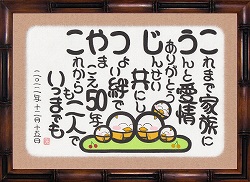 これまで家族に
うんと愛情
ありがとう
じんせい共にし
つよい絆で
やまこえ50年
これからも二人で
いつまでも
二〇二二年十二月十五日